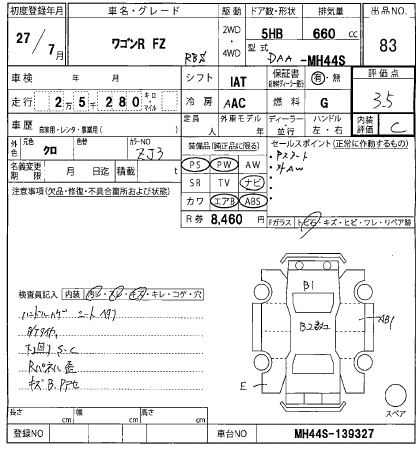 初度登録年月 車名・グレード 駆動 ドア数・形状 排気量 出品NO.
27/7月 ワゴンR FZ RBS 2WD・4WD 5HB 660cc 83
型式 DAA-MH44S
車検 年 月 シフト IAT 保証書 有・無 評価点
走行 2万5千280キロ・マイル 冷房 AAC 燃料 G 3.5
車歴 自家用・レンタ・事業用( ) 定員 人 外車モデル 年 ディーラー・並行 ハンドル 左・右 内装評価 C
外色 元色 クロ 色替 カラーNO ZJ3
装備品(純正品に限る)
PS PW AW
SR TV ナビ
カワ エアB ABS
セールスポイント(正常に作動するもの)
・Pスタート
・外AW
名義変更期限 月 日迄 積載 t
R券 8,460円
注意事項(欠品・修復・不具合箇所および状態)
Fガラス トビ石・キズ・ヒビ・ワレ・リペア跡
検査員記入 内装 ヨゴレ・スレ・キズ・キレ・コゲ・穴
下回りS.C
Rパネル歪
キズB.Pアセ
B1
B2
AB1
E
スペア
長さ cm 幅 cm 高さ cm
登録NO 車台NO MH44S-139327